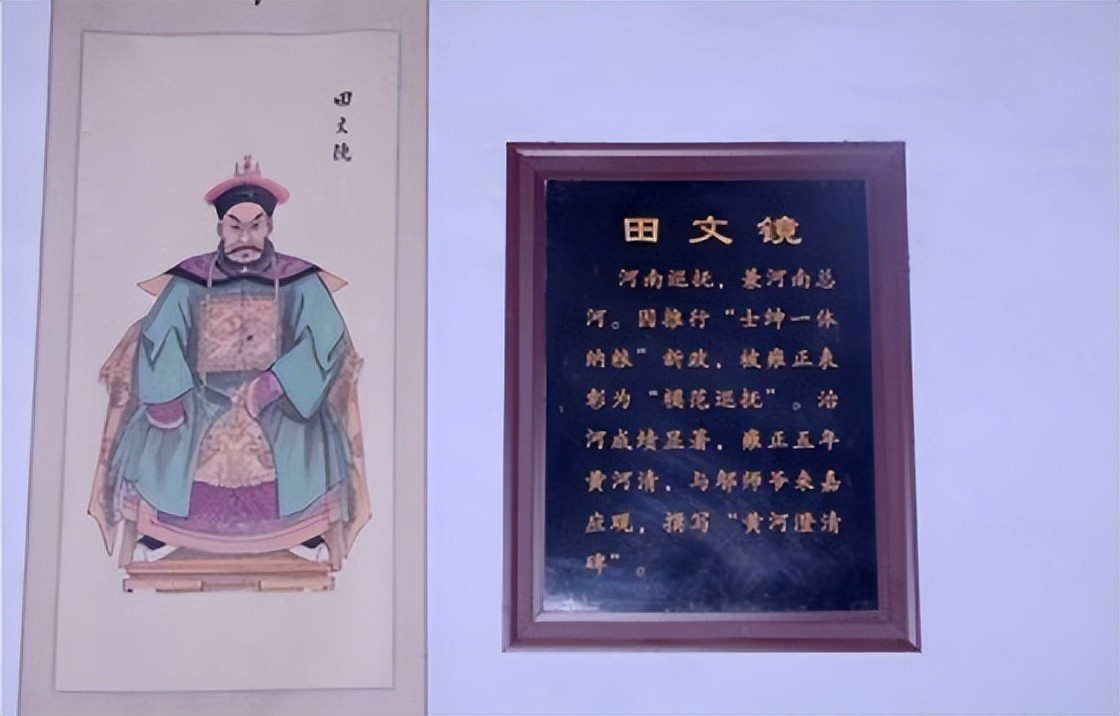 田文镜
田文镜
河南巡抚，兼河南总
河。因推行“士绅一体
纳粮”新政，被雍正表
彰为“模范巡抚”。治
河成绩显著，雍正五年
黄河清，与邬师爷来嘉
应观，撰写“黄河澄清
碑”。